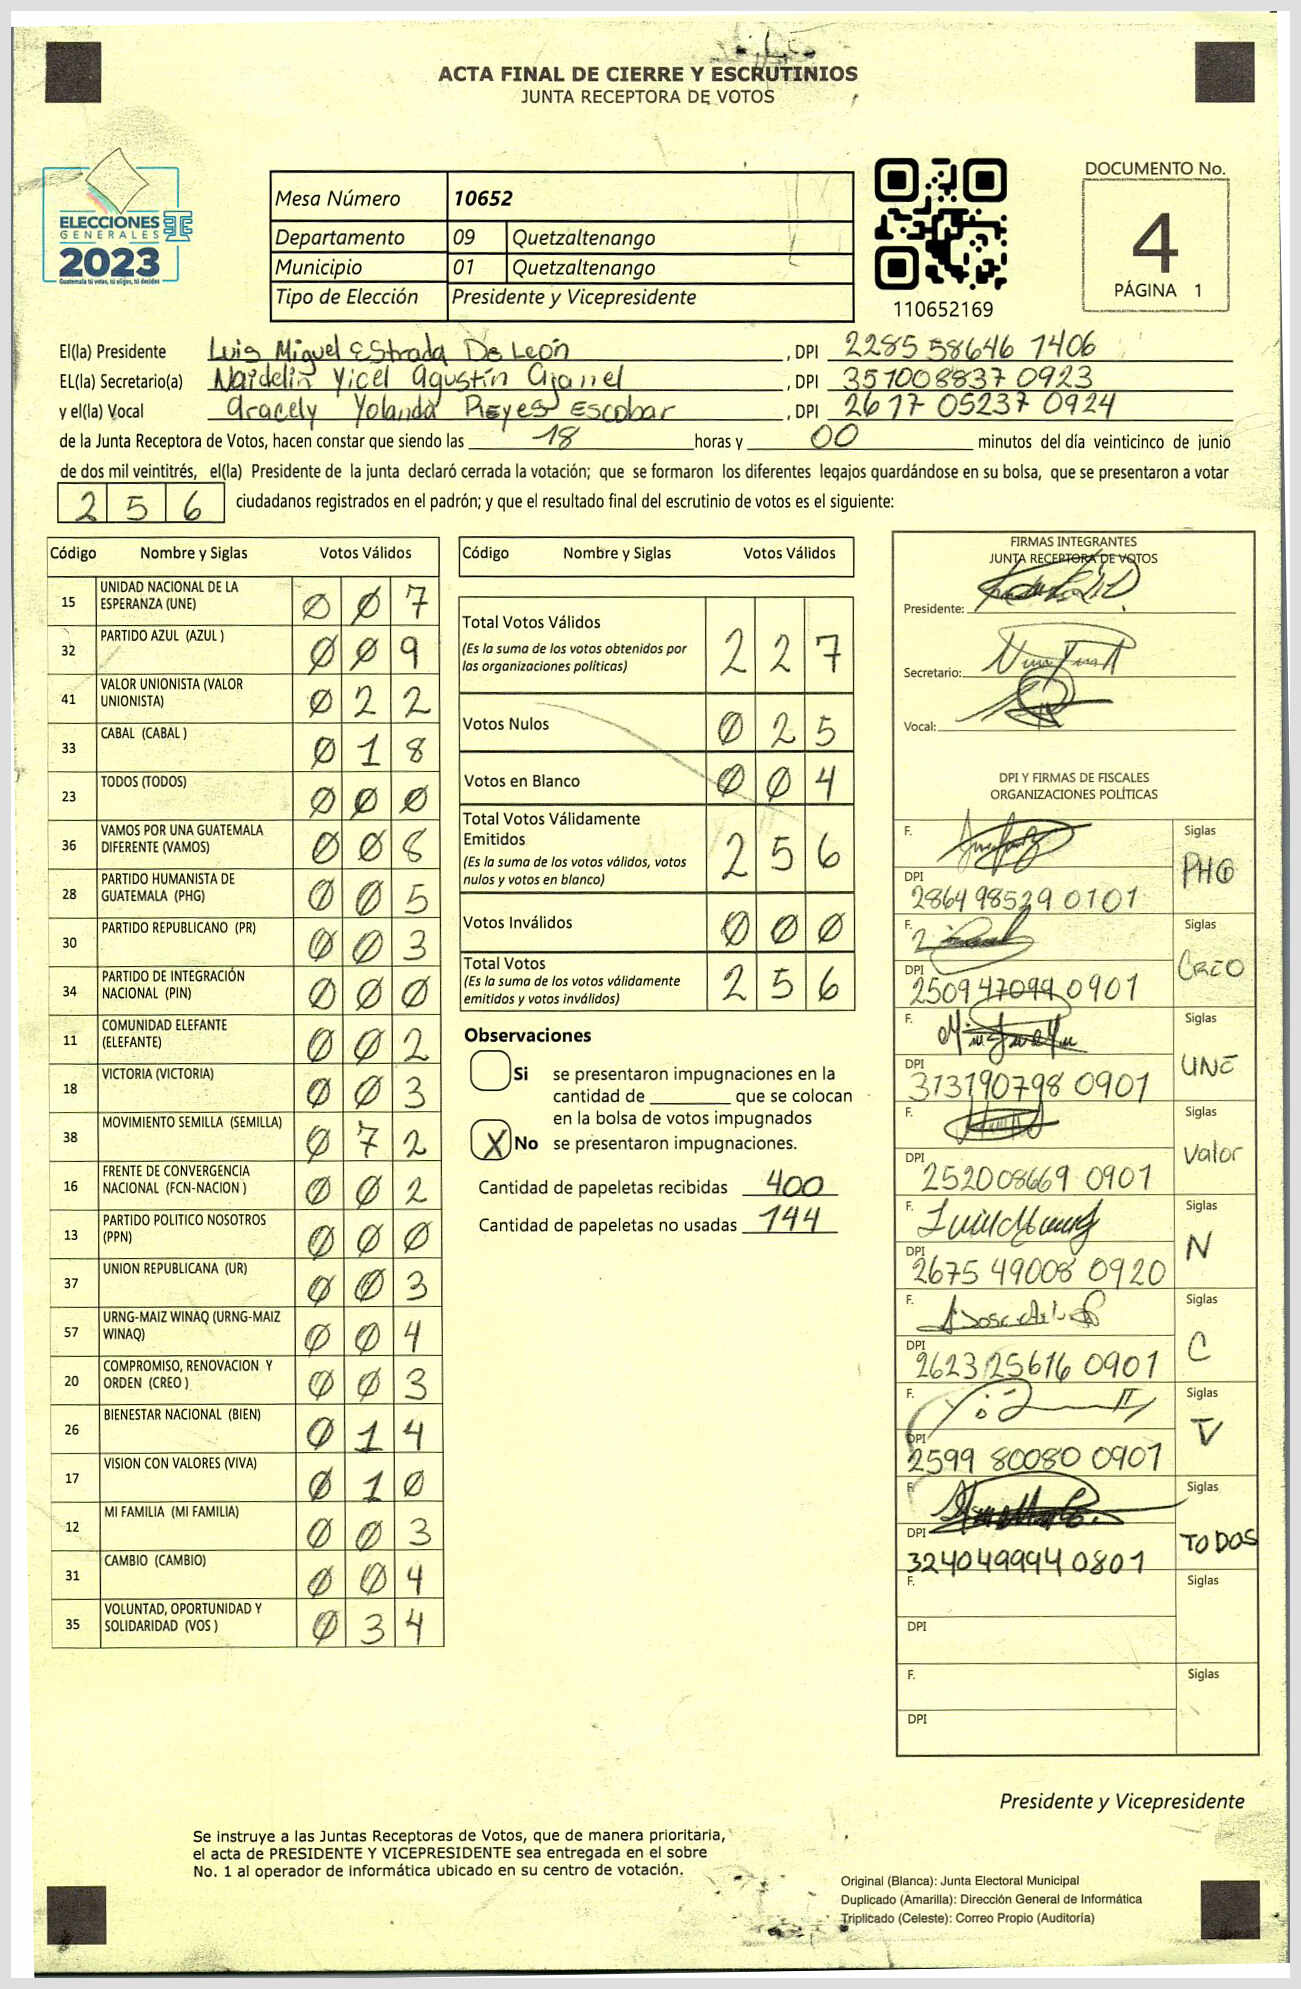 ACTA FINAL DE CIERRE Y ESCRUTINIOS
JUNTA RECEPTORA DE VOTOS
ELECCIONES
GENERALES
2023
Guatemala tú votas, tú eliges, tú decides
Mesa Número 10652
Departamento 09 Quetzaltenango
Municipio 01 Quetzaltenango
Tipo de Elección Presidente y Vicepresidente
110652169
DOCUMENTO No.
4
PÁGINA 1
El(la) Presidente Luis Miguel Estrada De León, DPI 2285 58646 1406
EL(la) Secretario(a) Naidelin Yicel Agustín, DPI 351008837 0923
y el(la) Vocal Aracely Yolanda Reyes Escobar, DPI 2617 05237 0924
de la Junta Receptora de Votos, hacen constar que siendo las 18 horas y 00 minutos del día veinticinco de junio
de dos mil veintitrés, el(la) Presidente de la junta declaró cerrada la votación; que se formaron los diferentes legajos guardándose en su bolsa, que se presentaron a votar
256 ciudadanos registrados en el padrón; y que el resultado final del escrutinio de votos es el siguiente:
Código Nombre y Siglas Votos Válidos
15 UNIDAD NACIONAL DE LA ESPERANZA (UNE) 007
32 PARTIDO AZUL (AZUL ) 009
41 VALOR UNIONISTA (VALOR UNIONISTA) 022
33 CABAL (CABAL ) 018
23 TODOS (TODOS) 000
36 VAMOS POR UNA GUATEMALA DIFERENTE (VAMOS) 008
28 PARTIDO HUMANISTA DE GUATEMALA (PHG) 005
30 PARTIDO REPUBLICANO (PR) 003
34 PARTIDO DE INTEGRACIÓN NACIONAL (PIN) 000
11 COMUNIDAD ELEFANTE (ELEFANTE) 002
18 VICTORIA (VICTORIA) 003
38 MOVIMIENTO SEMILLA (SEMILLA) 072
16 FRENTE DE CONVERGENCIA NACIONAL (FCN-NACION ) 002
13 PARTIDO POLITICO NOSOTROS (PPN) 000
37 UNION REPUBLICANA (UR) 003
57 URNG-MAIZ WINAQ (URNG-MAIZ WINAQ) 004
20 COMPROMISO, RENOVACION Y ORDEN (CREO ) 003
26 BIENESTAR NACIONAL (BIEN) 014
17 VISION CON VALORES (VIVA) 010
12 MI FAMILIA (MI FAMILIA) 003
31 CAMBIO (CAMBIO) 004
35 VOLUNTAD, OPORTUNIDAD Y SOLIDARIDAD (VOS ) 034
Código Nombre y Siglas Votos Válidos
Total Votos Válidos 227
(Es la suma de los votos obtenidos por
las organizaciones políticas)
Votos Nulos 025
Votos en Blanco 004
Total Votos Válidamente
Emitidos 256
(Es la suma de los votos válidos, votos
nulos y votos en blanco)
Votos Inválidos 000
Total Votos 256
(Es la suma de los votos válidamente
emitidos y votos inválidos)
Observaciones
Si se presentaron impugnaciones en la
cantidad de ________ que se colocan
en la bolsa de votos impugnados
X No se presentaron impugnaciones.
Cantidad de papeletas recibidas 400
Cantidad de papeletas no usadas 144
FIRMAS INTEGRANTES
JUNTA RECEPTORA DE VOTOS
Presidente:
Secretario:
Vocal:
DPI Y FIRMAS DE FISCALES
ORGANIZACIONES POLÍTICAS
F. Siglas PHG
DPI 2864 98529 0101
F. Siglas CREO
DPI 2509 47099 0901
F. Siglas UNE
DPI 313190798 0901
F. Siglas Valor
DPI 252008669 0901
F. Siglas N
DPI 2675 49008 0920
F. Siglas C
DPI 2623 25616 0901
F. Siglas V
DPI 2599 80080 0901
F. Siglas TODOS
DPI 324049994 0801
F. Siglas
DPI
F. Siglas
DPI
Presidente y Vicepresidente
Se instruye a las Juntas Receptoras de Votos, que de manera prioritaria,
el acta de PRESIDENTE Y VICEPRESIDENTE sea entregada en el sobre
No. 1 al operador de informática ubicado en su centro de votación.
Original (Blanca): Junta Electoral Municipal
Duplicado (Amarilla): Dirección General de Informática
Triplicado (Celeste): Correo Propio (Auditoría)